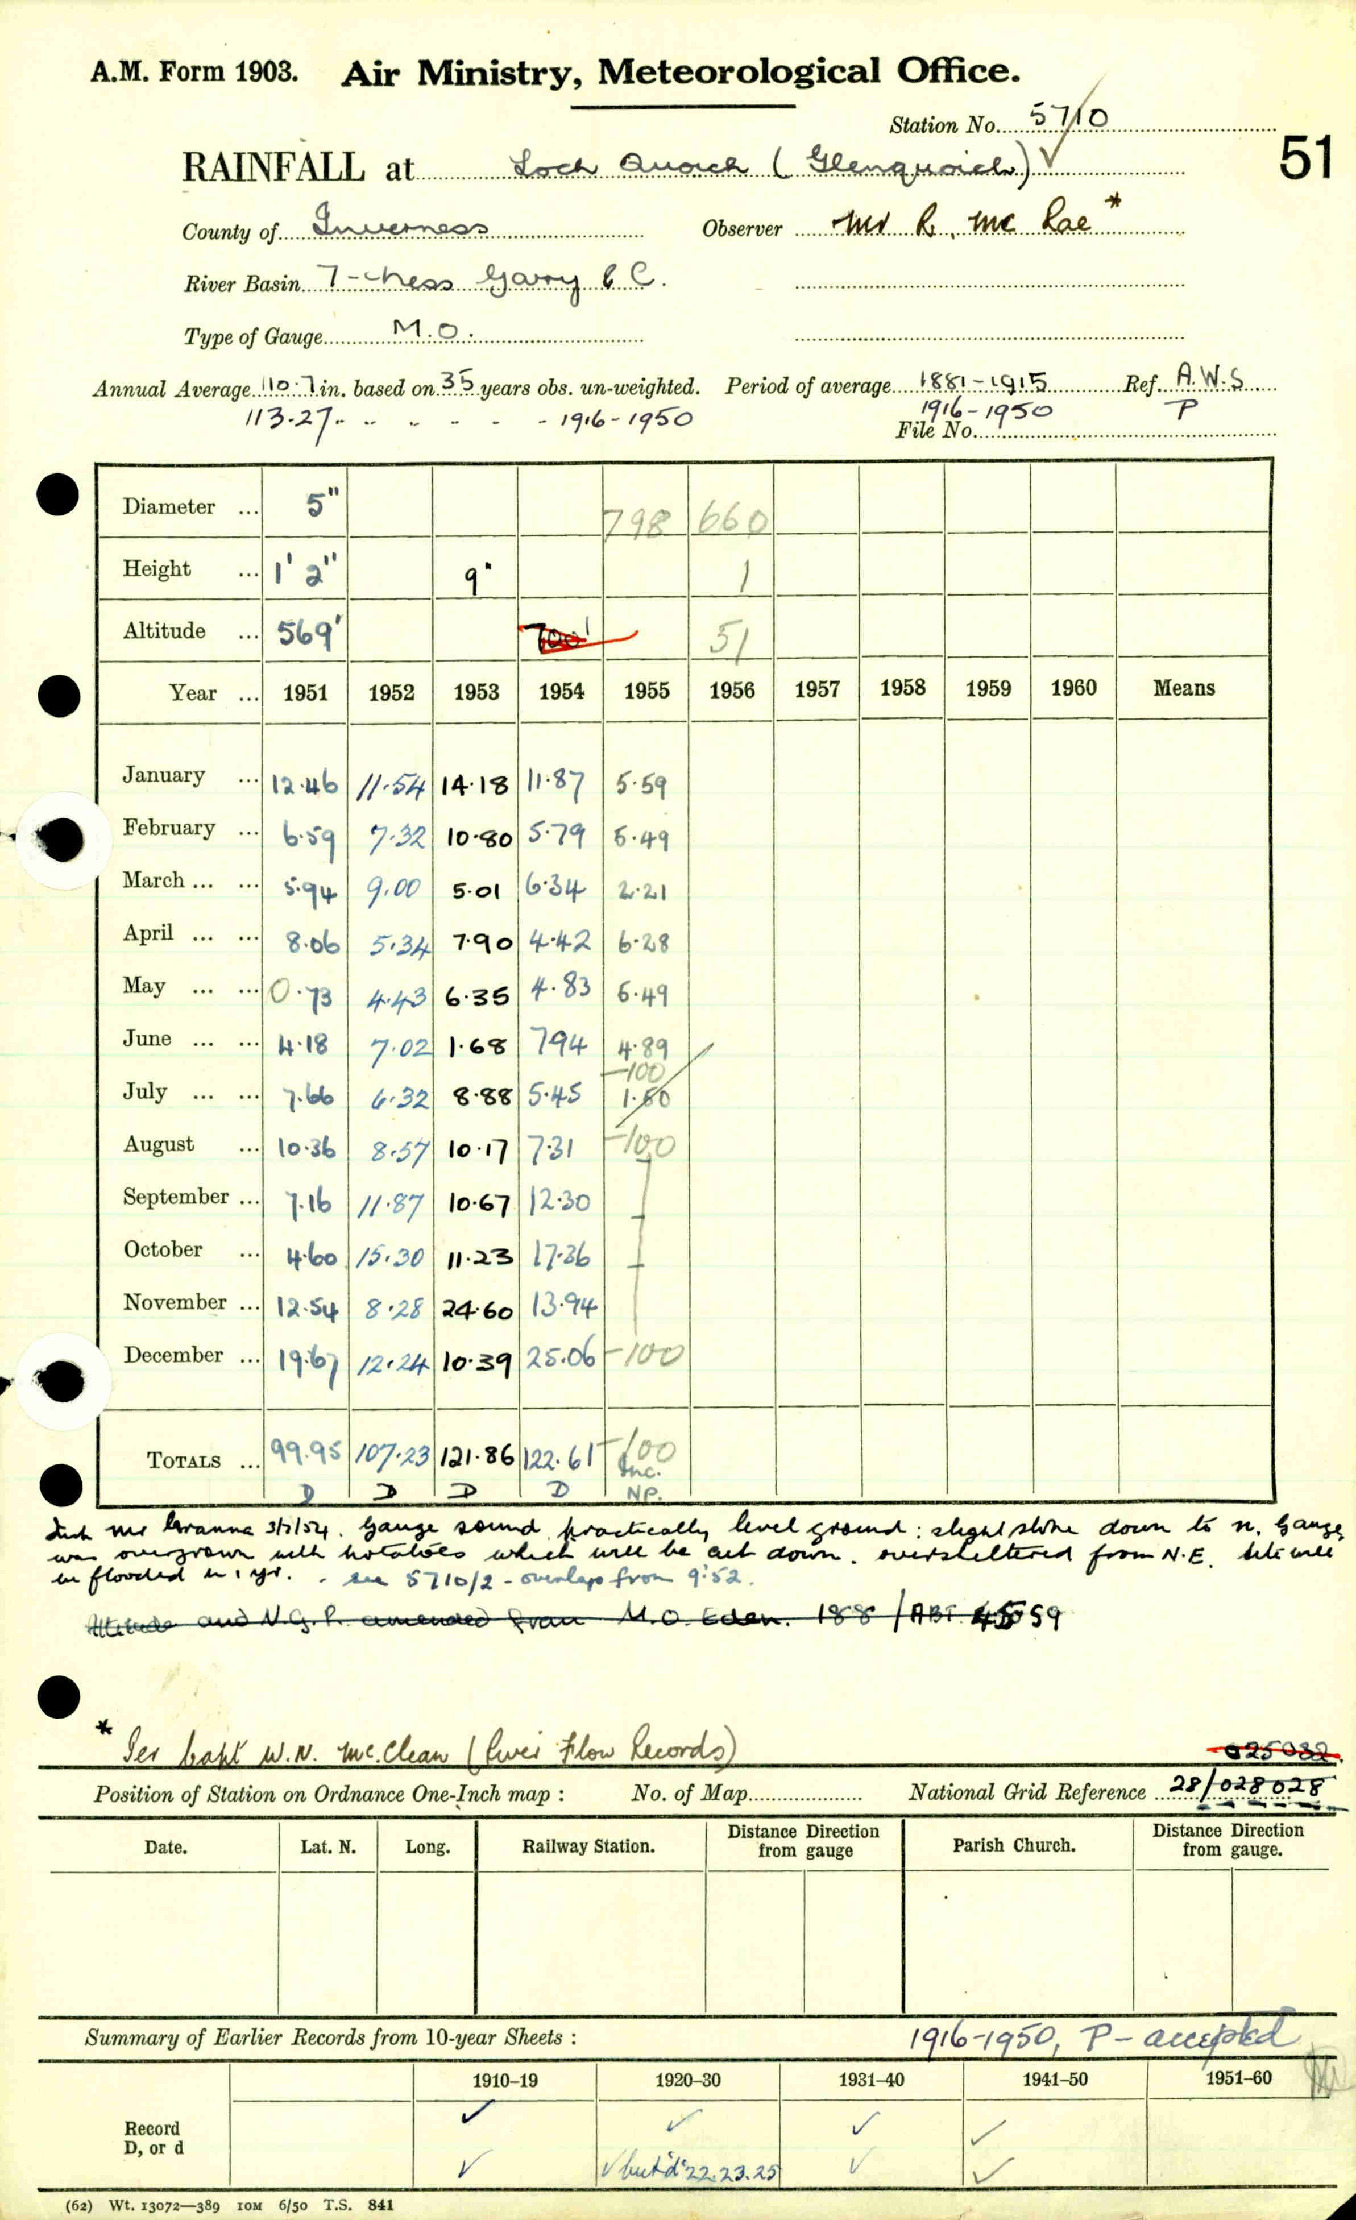 A.M. Form 1903. Air Ministry, Meteorological Office.
Station No. 5710
51
RAINFALL at Loch Quoich (Glenquoich)
County of Inverness Observer Mr R. Mc Rae *
River Basin 7-Ness Garry & C.
Type of Gauge M.O.
Annual Average 110.7 in. based on 35 years obs. un-weighted. Period of average 1881-1915 Ref. A.W.S
113.27 - - - - - - 1916-1950 1916-1950 P
File No.
Diameter ... 5" 798 660
Height ... 1' 2" 9" 1
Altitude ... 569' 700' 51
Year ... 1951 1952 1953 1954 1955 1956 1957 1958 1959 1960 Means
January ... 12.46 11.54 14.18 11.87 5.59
February ... 6.59 7.32 10.80 5.79 5.49
March ... ... 5.94 9.00 5.01 6.34 2.21
April ... ... 8.06 5.34 7.90 4.42 6.28
May ... ... 0.73 4.43 6.35 4.83 6.49
June ... ... 4.18 7.02 1.68 7.94 4.89
-100
July ... ... 7.66 6.32 8.88 5.45 1.50
August ... 10.36 8.57 10.17 7.31 -100
September ... 7.16 11.87 10.67 12.30
October ... 4.60 15.30 11.23 17.36
November ... 12.54 8.28 24.60 13.94
December ... 19.67 12.24 10.39 25.06 -100
TOTALS ... 99.95 107.23 121.86 122.61 -100
Inc.
D D D D NP.
Mr Grannna 3/7/54. Gauge sound, practically level ground: slight slope down to N. Gauge
was overgrown with potatoes which will be cut down. oversheltered from N.E. Site will
be flooded in 1 yr. . see 5710/2 - overlaps from 9.52.
Altitude and N.G.R. amended from M.O. Eden. 188/ABT 4559
* Per Capt W.N. McClean (River Flow Records)
025032.
Position of Station on Ordnance One-Inch map : No. of Map National Grid Reference 28/028028
Date. Lat. N. Long. Railway Station. Distance from Direction gauge Parish Church. Distance from Direction gauge.
Summary of Earlier Records from 10-year Sheets : 1916-1950, P - accepted
1910-19 1920-30 1931-40 1941-50 1951-60
Record ✓ ✓ ✓ ✓
D, or d ✓ ✓ but 'd' 22.23.25 ✓ ✓
(62) Wt. 13072—389 10M 6/50 T.S. 841